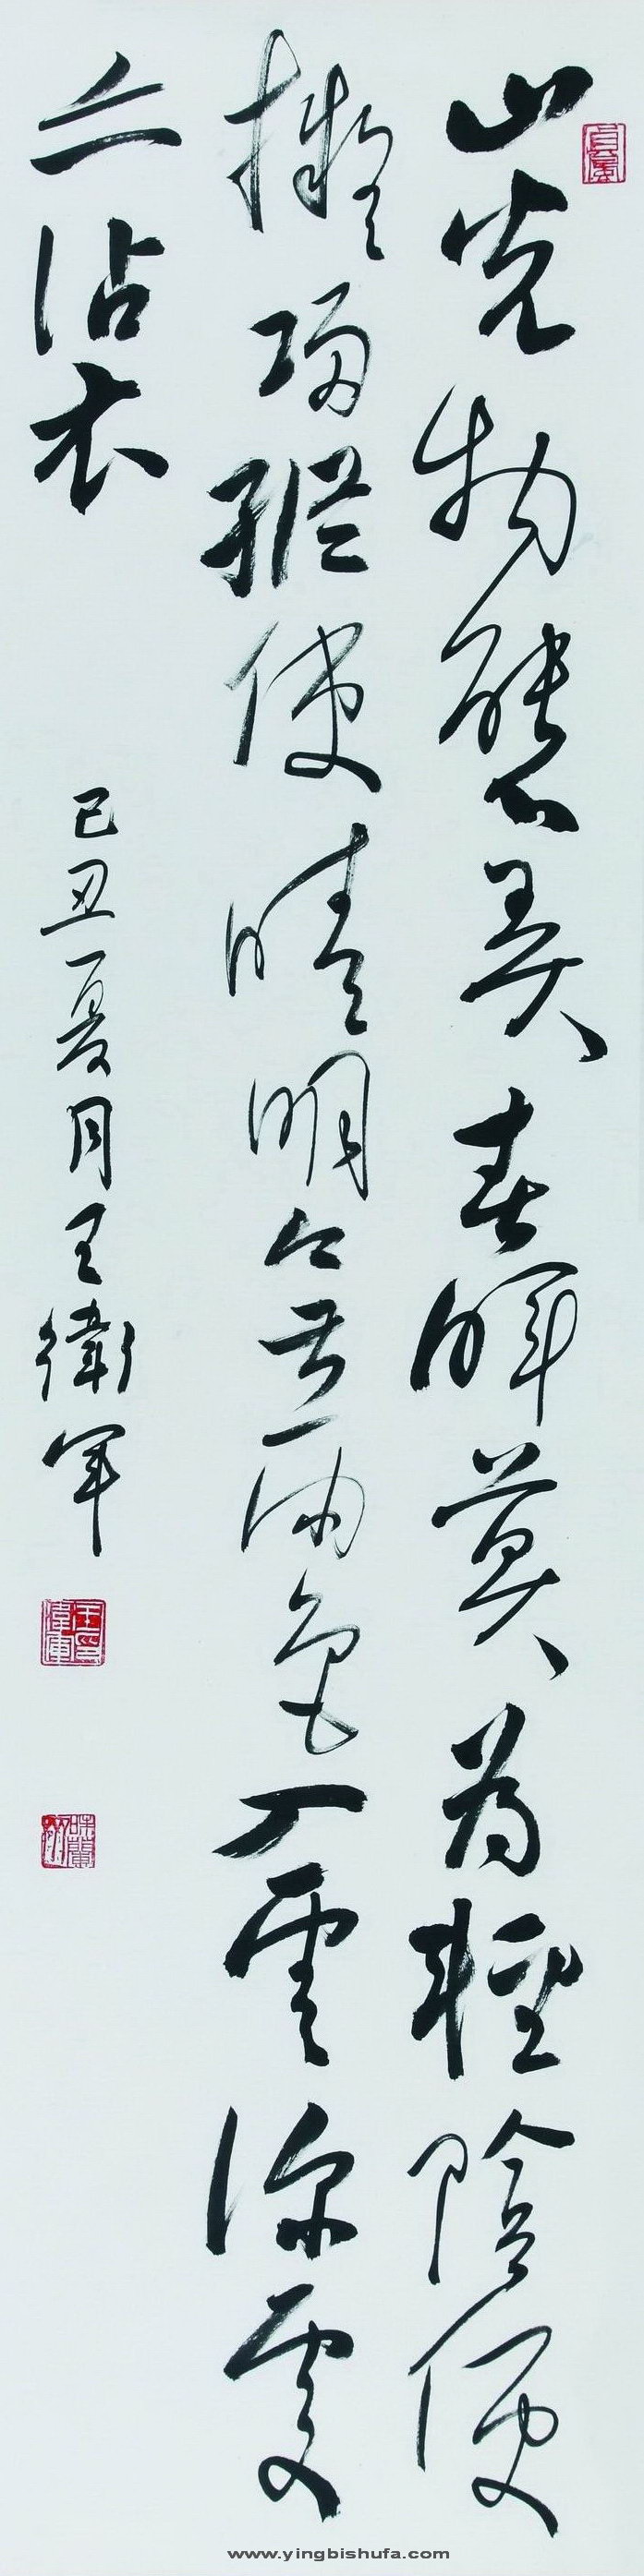 山光物態弄春暉莫為輕陰便
擬歸縱使晴明無雨色入雲深處
亦沾衣
己丑夏月王衛軍
www.yingbishufa.com